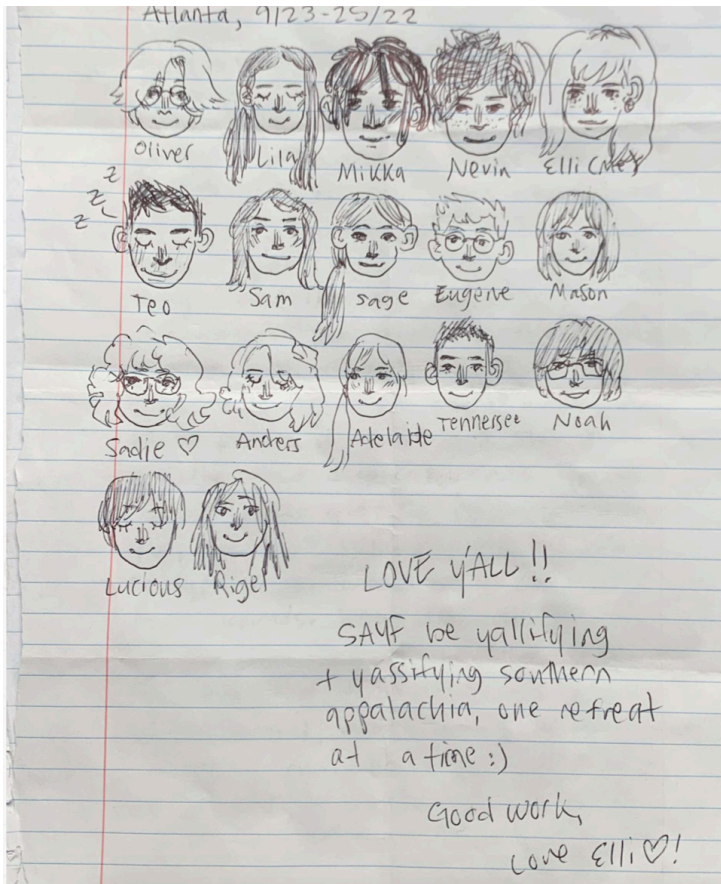 Atlanta, 9/23-25/22
Oliver Lila Mikka Nevin Elli (me)
z
z
z
Teo Sam Sage Eugene Mason
Sadie ♡ Anders Adelaide Tennersee Noah
Lucious Rigel
LOVE Y'ALL!!
SAYF be yallifying
+ yassifying southern
appalachia, one retreat
at a time :)
Good work,
Love Elli♡!